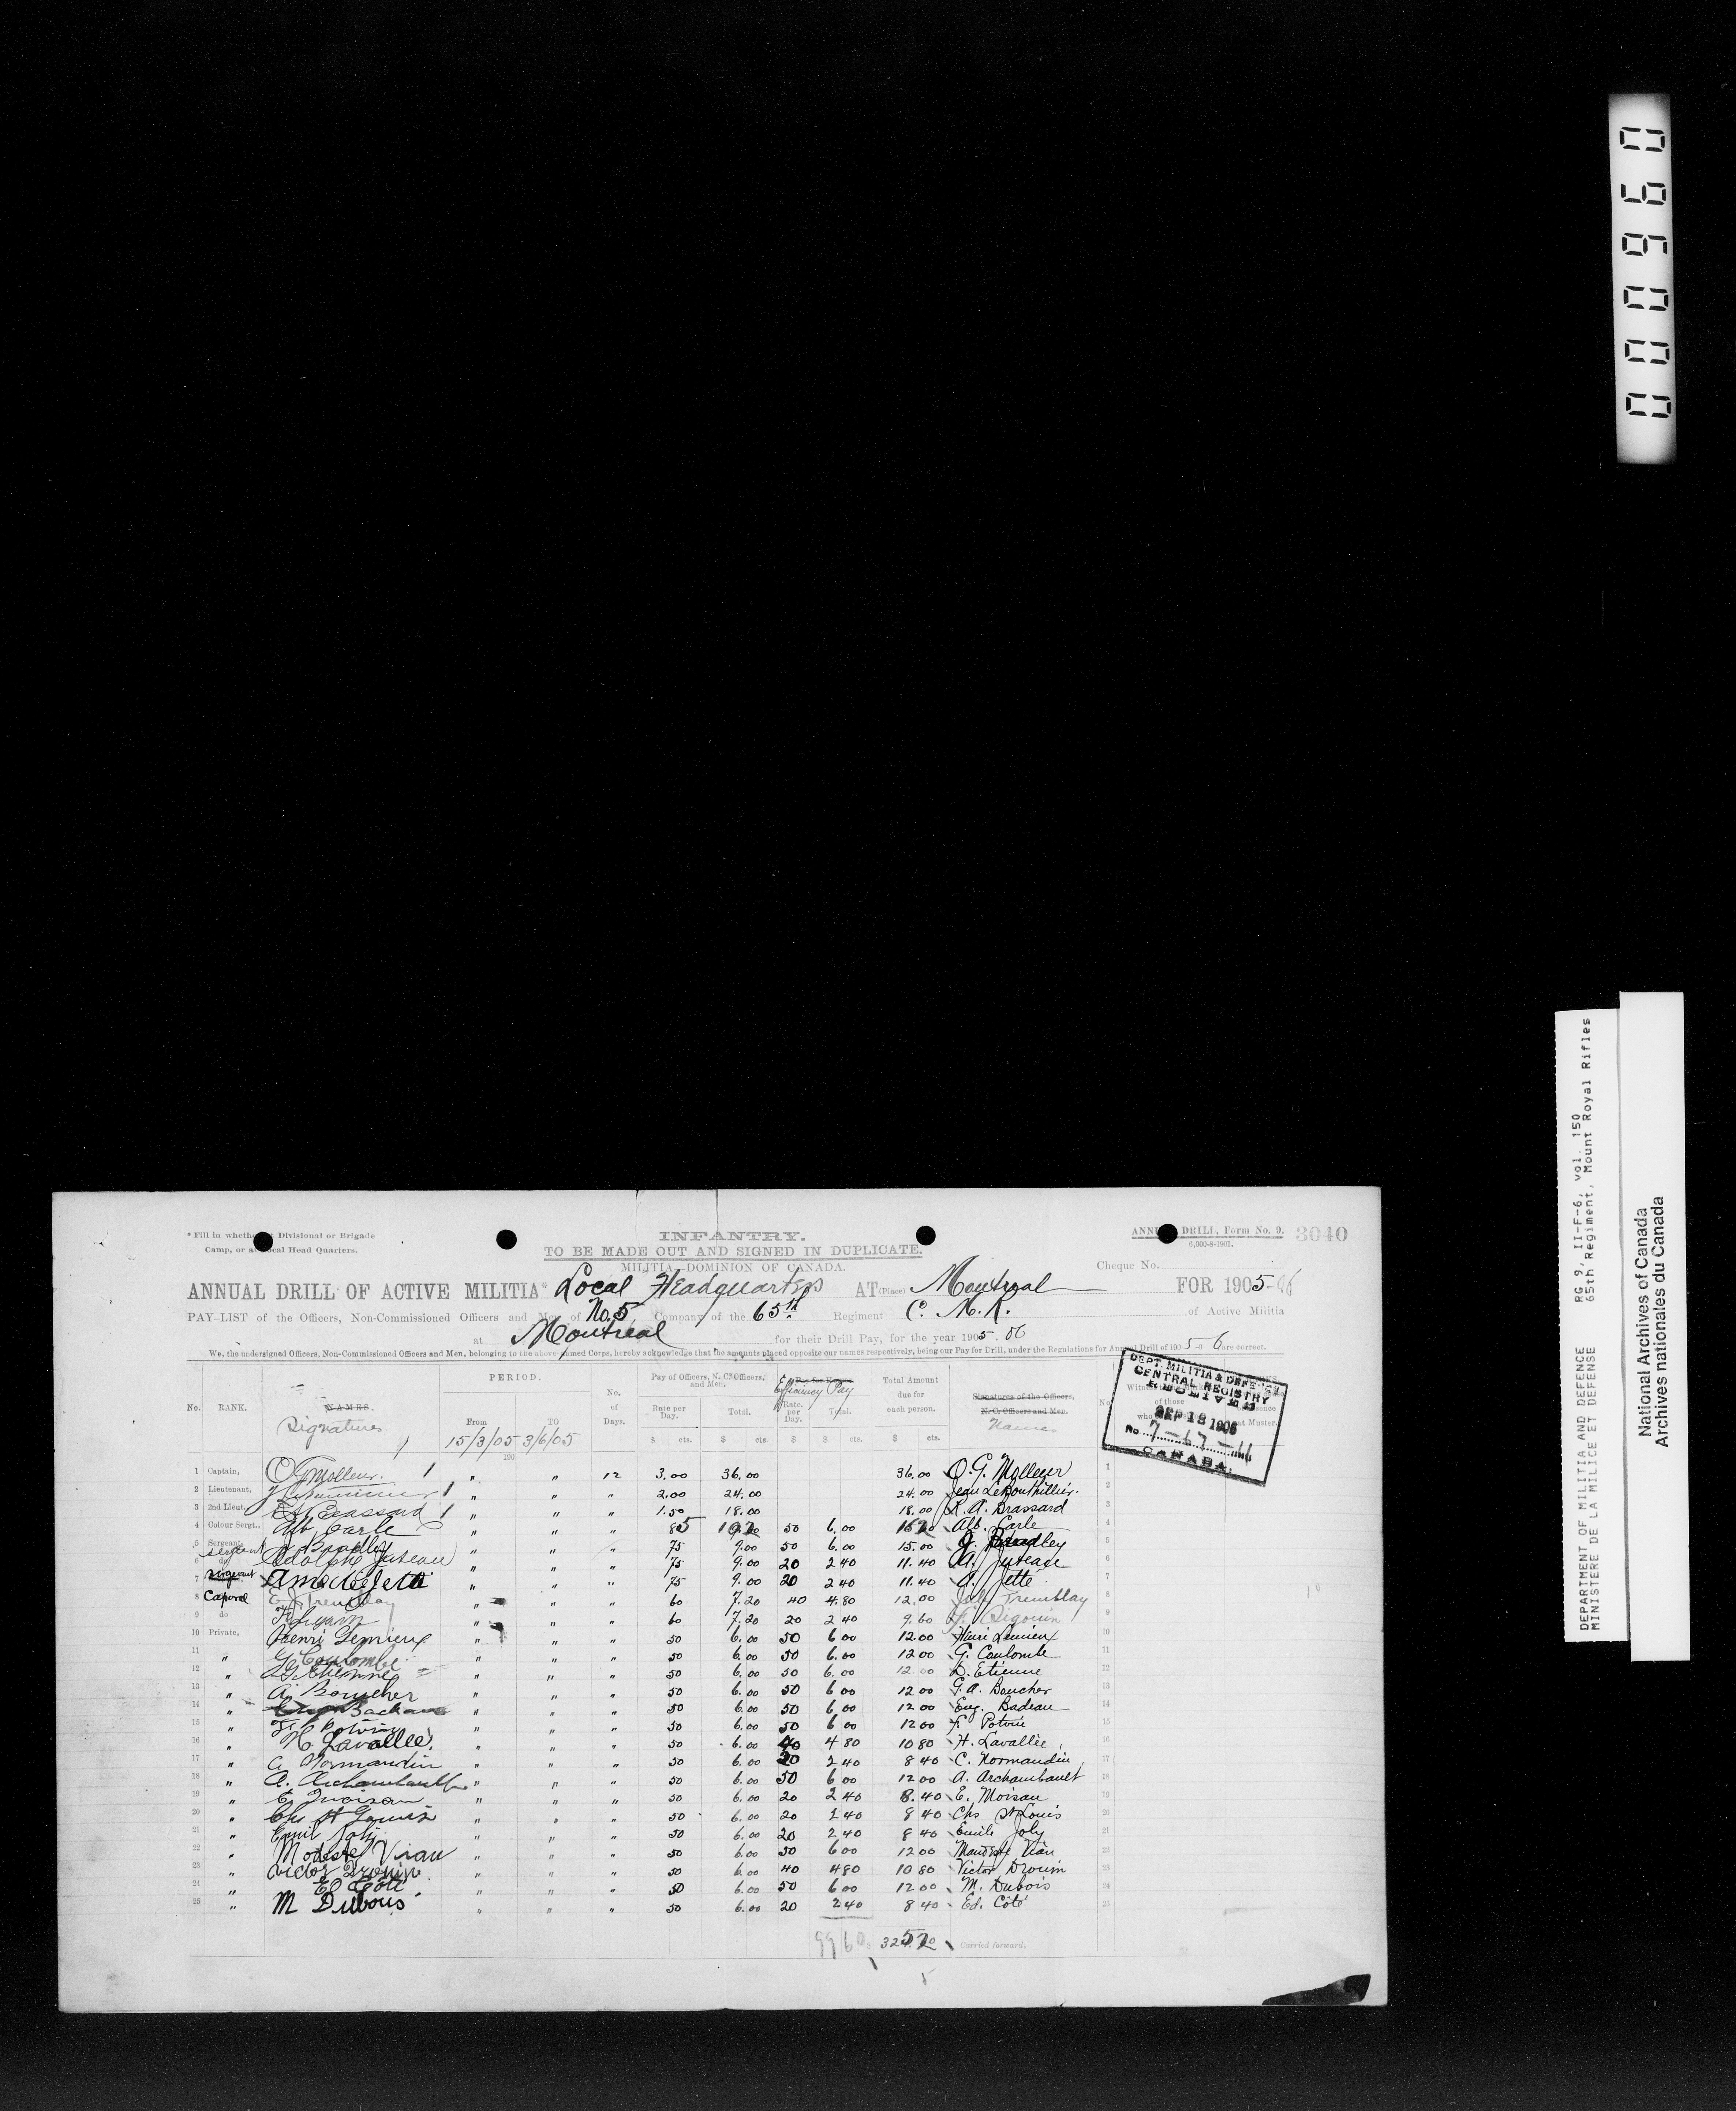 000960
DEPARTMENT OF MILITIA AND DEFENCE RG 9, II-F-6, vol. 150
MINISTERE DE LA MILICE ET DEFENSE 65th Regiment, Mount Royal Rifles
National Archives of Canada
Archives nationales du Canada
* Fill in whether Divisional or Brigade
Camp, or at Local Head Quarters.
INFANTRY.
TO BE MADE OUT AND SIGNED IN DUPLICATE.
MILITIA DOMINION OF CANADA.
ANNUAL DRILL, Form No. 9.
6,000-8-1901.
3040
Cheque No.
ANNUAL DRILL OF ACTIVE MILITIA* Local Headquarters AT (Place) Montreal FOR 1905-06
PAY-LIST of the Officers, Non-Commissioned Officers and Men of No. 5 Company of the 65th Regiment C. M. R. of Active Militia
at Montreal for their Drill Pay, for the year 1905.06
We, the undersigned Officers, Non-Commissioned Officers and Men, belonging to the above named Corps, hereby acknowledge that the amounts placed opposite our names respectively, being our Pay for Drill, under the Regulations for Annual Drill of 1905-06 are correct.
No. RANK. NAMES. Signatures PERIOD. From 15/3/05 TO 3/6/05 190 No. of Days. Pay of Officers, N. C. Officers, and Men. Rate per Day. Total. Efficiency Pay Rate per Day. Total. Total Amount due for each person. Signatures of the Officers, N. C. Officers and Men. Names No.
$ cts. $ cts. $ $ cts. $ cts.
DEPT. MILITIA & DEFENCE
CENTRAL REGISTRY
RECEIVED
SEP 18 1906
No. 7-67-11
CANADA.
1 Captain, O G Molleur. 1 " " 12 3.00 36.00 36.00 O. G. Molleur 1
2 Lieutenant, 1 " " " 2.00 24.00 24.00 Jean LeBouthillier. 2
3 2nd Lieut. R A Brassard 1 " " " 1.50 18.00 18.00 R. A. Brassard 3
4 Colour Sergt., Alb Earle " " " 85 50 6.00 Alb. Earle 4
5 Sergeant, J Bradley " " " 75 9.00 50 6.00 15.00 J. Bradley 5
6 do Adolphe Juteau " " " 75 9.00 20 2 40 11.40 A. Juteau 6
7 sergeant " " " 75 9.00 20 2 40 11.40 A. Jetté 7
8 Caporal E J Tremblay " " " 60 7.20 40 4.80 12.00 Tremblay 8
9 do " " " 60 7.20 20 2 40 9.60 Sigouin 9
10 Private, Henri Lemieux " " " 50 6.00 50 6 00 12.00 Henri Lemieux 10
11 " G Coulombe " " " 50 6.00 50 6.00 12 00 G. Coulombe 11
12 " D Etienne " " " 50 6.00 50 6.00 12.00 D. Etienne 12
13 " A Boucher " " " 50 6.00 50 6 00 12 00 G. A. Boucher 13
14 " Eug Badeau " " " 50 6.00 50 6,00 12 00 Eug. Badeau 14
15 " F Potvin " " " 50 6.00 50 6 00 12 00 F. Potvin 15
16 " H. Lavallée. " " " 50 6.00 40 4 80 10 80 H. Lavallée 16
17 " C Normandin " " " 50 6.00 20 2 40 8 40 C. Normandin 17
18 " A. Archambault " " " 50 6.00 50 6 00 12 00 A. Archambault 18
19 " E Moisan " " " 50 6.00 20 2 40 8.40 E. Moisan 19
20 " Chs St Louis " " " 50 6.00 20 2 40 8 40 Chs St Louis 20
21 " Emil Joly " " " 50 6.00 20 2 40 8 40 Emile Joly 21
22 " Modeste Viau " " " 50 6.00 50 6 00 12 00 Viau 22
23 " Victor Drouin " " " 50 6.00 40 4 80 10 80 Victor Drouin 23
24 " Ed Côté " " " 50 6.00 50 6 00 12 00 M. Dubois 24
25 " M Dubois " " " 50 6.00 20 2 40 8 40 Ed. Côté 25
99 60 Carried forward.